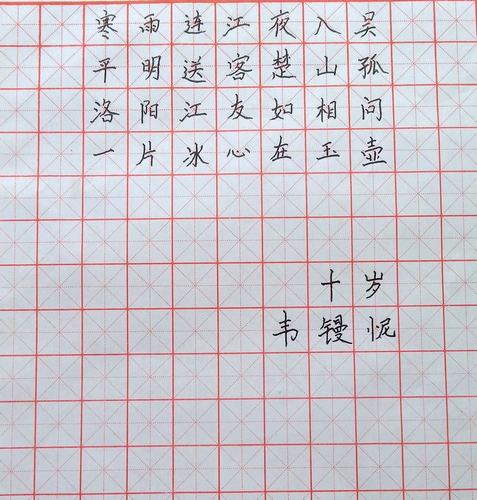 寒雨连江夜入吴
平明送客楚山孤
洛阳江友如相问
一片冰心在玉壶
十岁
韦镘怩